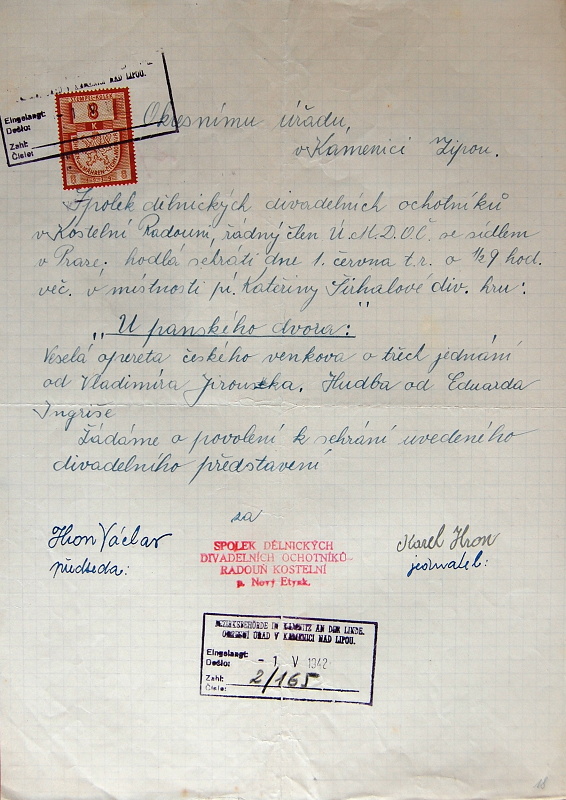 V KAMENICI NAD LIPOU.
Eingelangt:
Došlo:
Zahl:
Čislo:
STEMPELMARKE
8
K
BÖHMEN-MÄHREN
8 8
Okresnímu úřadu,
v Kamenici Lipou.
Spolek dělnických divadelních ochotníků
v Kostelní Radouni, řádný člen Ú.M.D.O.Č. se sídlem
v Praze, hodlá sehráti dne 1. června t.r. o ½9 hod.
več. v místnosti pí. Kateřiny Šírhalové div. hru:
„U panského dvora:"
Veselá opereta českého venkova o třech jednání
od Vladimíra Jirouska. Hudba od Eduarda
Ingriše
Žádáme o povolení k sehrání uvedeného
divadelního představení
za
Hron Václav
předseda:
SPOLEK DĚLNICKÝCH
DIVADELNÍCH OCHOTNÍKŮ
RADOUŇ KOSTELNÍ
p. Nový Etynk.
Karel Hron
jednatel:
BEZIRKSBEHÖRDE IN KAMNITZ AN DER LINDE.
OKRESNÍ ÚŘAD V KAMENICI NAD LIPOU.
Eingelangt:
Došlo: - 1 V 1942
Zahl: 2/165
Čislo:
18